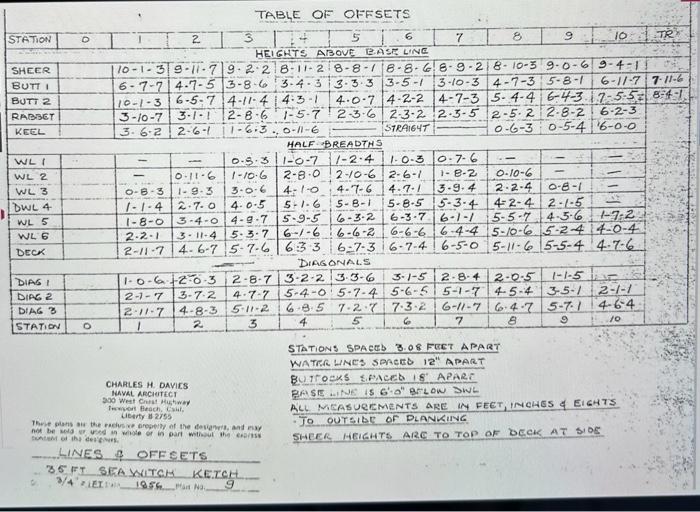 TABLE OF OFFSETS
STATION 0 1 2 3 4 5 6 7 8 9 10 TR
HEIGHTS ABOVE BASE LINE
SHEER 10-1-3 9-11-7 9-2-2 8-11-2 8-8-1 8-8-6 8-9-2 8-10-3 9-0-6 9-4-1
BUTT 1 6-7-7 4-7-5 3-8-6 3-4-3 3-3-3 3-5-1 3-10-3 4-7-3 5-8-1 6-11-7 7-11-6
BUTT 2 10-1-3 6-5-7 4-11-4 4-3-1 4-0-7 4-2-2 4-7-3 5-4-4 6-4-3 7-5-5 8-4-1
RABBET 3-10-7 3-1-1 2-8-6 1-5-7 2-3-6 2-3-2 2-3-5 2-5-2 2-8-2 6-2-3
KEEL 3-6-2 2-6-1 1-6-3 0-11-6 STRAIGHT 0-6-3 0-5-4 6-0-0
HALF BREADTHS
WL 1 — — 0-5-3 1-0-7 1-2-4 1-0-3 0-7-6 — — —
WL 2 — 0-11-6 1-10-6 2-8-0 2-10-6 2-6-1 1-8-2 0-10-6 — —
WL 3 0-8-3 1-9-3 3-0-6 4-1-0 4-7-6 4-7-1 3-9-4 2-2-4 0-8-1
DWL 4 1-1-4 2-7-0 4-0-5 5-1-6 5-8-1 5-8-5 5-3-4 4-2-4 2-1-5
WL 5 1-8-0 3-4-0 4-9-7 5-9-5 6-3-2 6-3-7 6-1-1 5-5-7 4-3-6 1-7-2
WL 6 2-2-1 3-11-4 5-3-7 6-1-6 6-6-2 6-6-6 6-4-4 5-10-6 5-2-4 4-0-4
DECK 2-11-7 4-6-7 5-7-6 6-3-3 6-7-3 6-7-4 6-5-0 5-11-6 5-5-4 4-7-6
DIAGONALS
DIAG 1 1-0-6 2-0-3 2-8-7 3-2-2 3-3-6 3-1-5 2-8-4 2-0-5 1-1-5
DIAG 2 2-1-7 3-7-2 4-7-7 5-4-0 5-7-4 5-6-5 5-1-7 4-5-4 3-5-1 2-1-1
DIAG 3 2-11-7 4-8-3 5-11-2 6-8-5 7-2-7 7-3-2 6-11-7 6-4-7 5-7-1 4-6-4
STATION 0 1 2 3 4 5 6 7 8 9 10
STATIONS SPACED 3.08 FEET APART
WATER LINES SPACED 12" APART
BUTTOCKS SPACED 18" APART
BASE LINE IS 6'-0" BELOW DWL
ALL MEASUREMENTS ARE IN FEET, INCHES & EIGHTS
TO OUTSIDE OF PLANKING
SHEER HEIGHTS ARE TO TOP OF DECK AT SIDE
CHARLES H. DAVIES
NAVAL ARCHITECT
300 West Coast Highway
Newport Beach, Calif.
Liberty 8 2755
These plans are the exclusive property of the designers, and may
not be sold or used in whole or in part without the express
consent of the designers.
LINES & OFFSETS
35 FT SEA WITCH KETCH
3/4" 1956 Plan No. 9